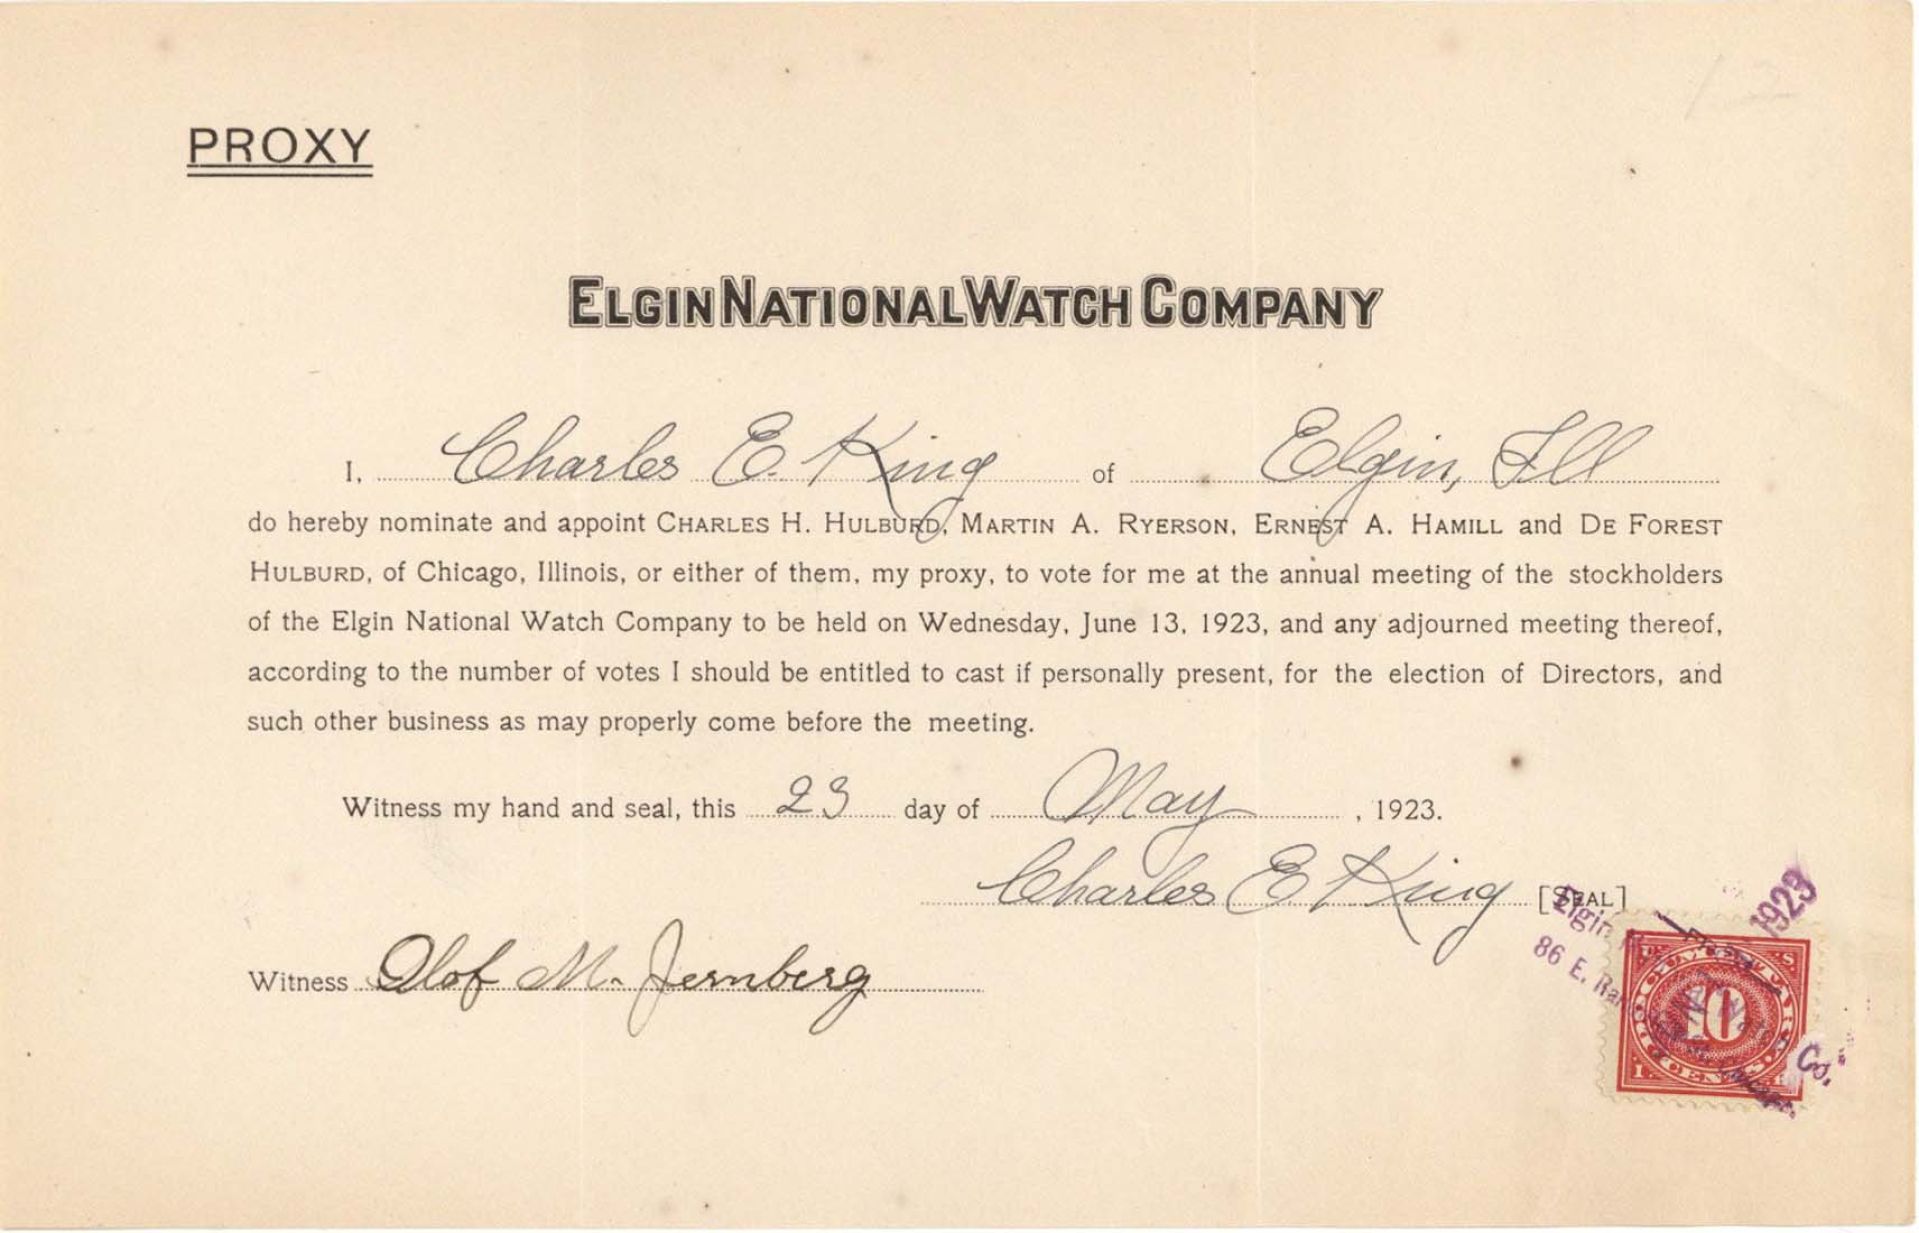 PROXY
ELGIN NATIONAL WATCH COMPANY
I, Charles E. King of Elgin, Ill
do hereby nominate and appoint CHARLES H. HULBURD, MARTIN A. RYERSON, ERNEST A. HAMILL and DE FOREST
HULBURD, of Chicago, Illinois, or either of them, my proxy, to vote for me at the annual meeting of the stockholders
of the Elgin National Watch Company to be held on Wednesday, June 13, 1923, and any adjourned meeting thereof,
according to the number of votes I should be entitled to cast if personally present, for the election of Directors, and
such other business as may properly come before the meeting.
Witness my hand and seal, this 23 day of May, 1923.
Charles E. King [SEAL]
Witness Olof M. Jernberg
1923
Elgin
86 E.
Co.
Chicago.
U. S.
DOCUMENTARY
10
CENTS